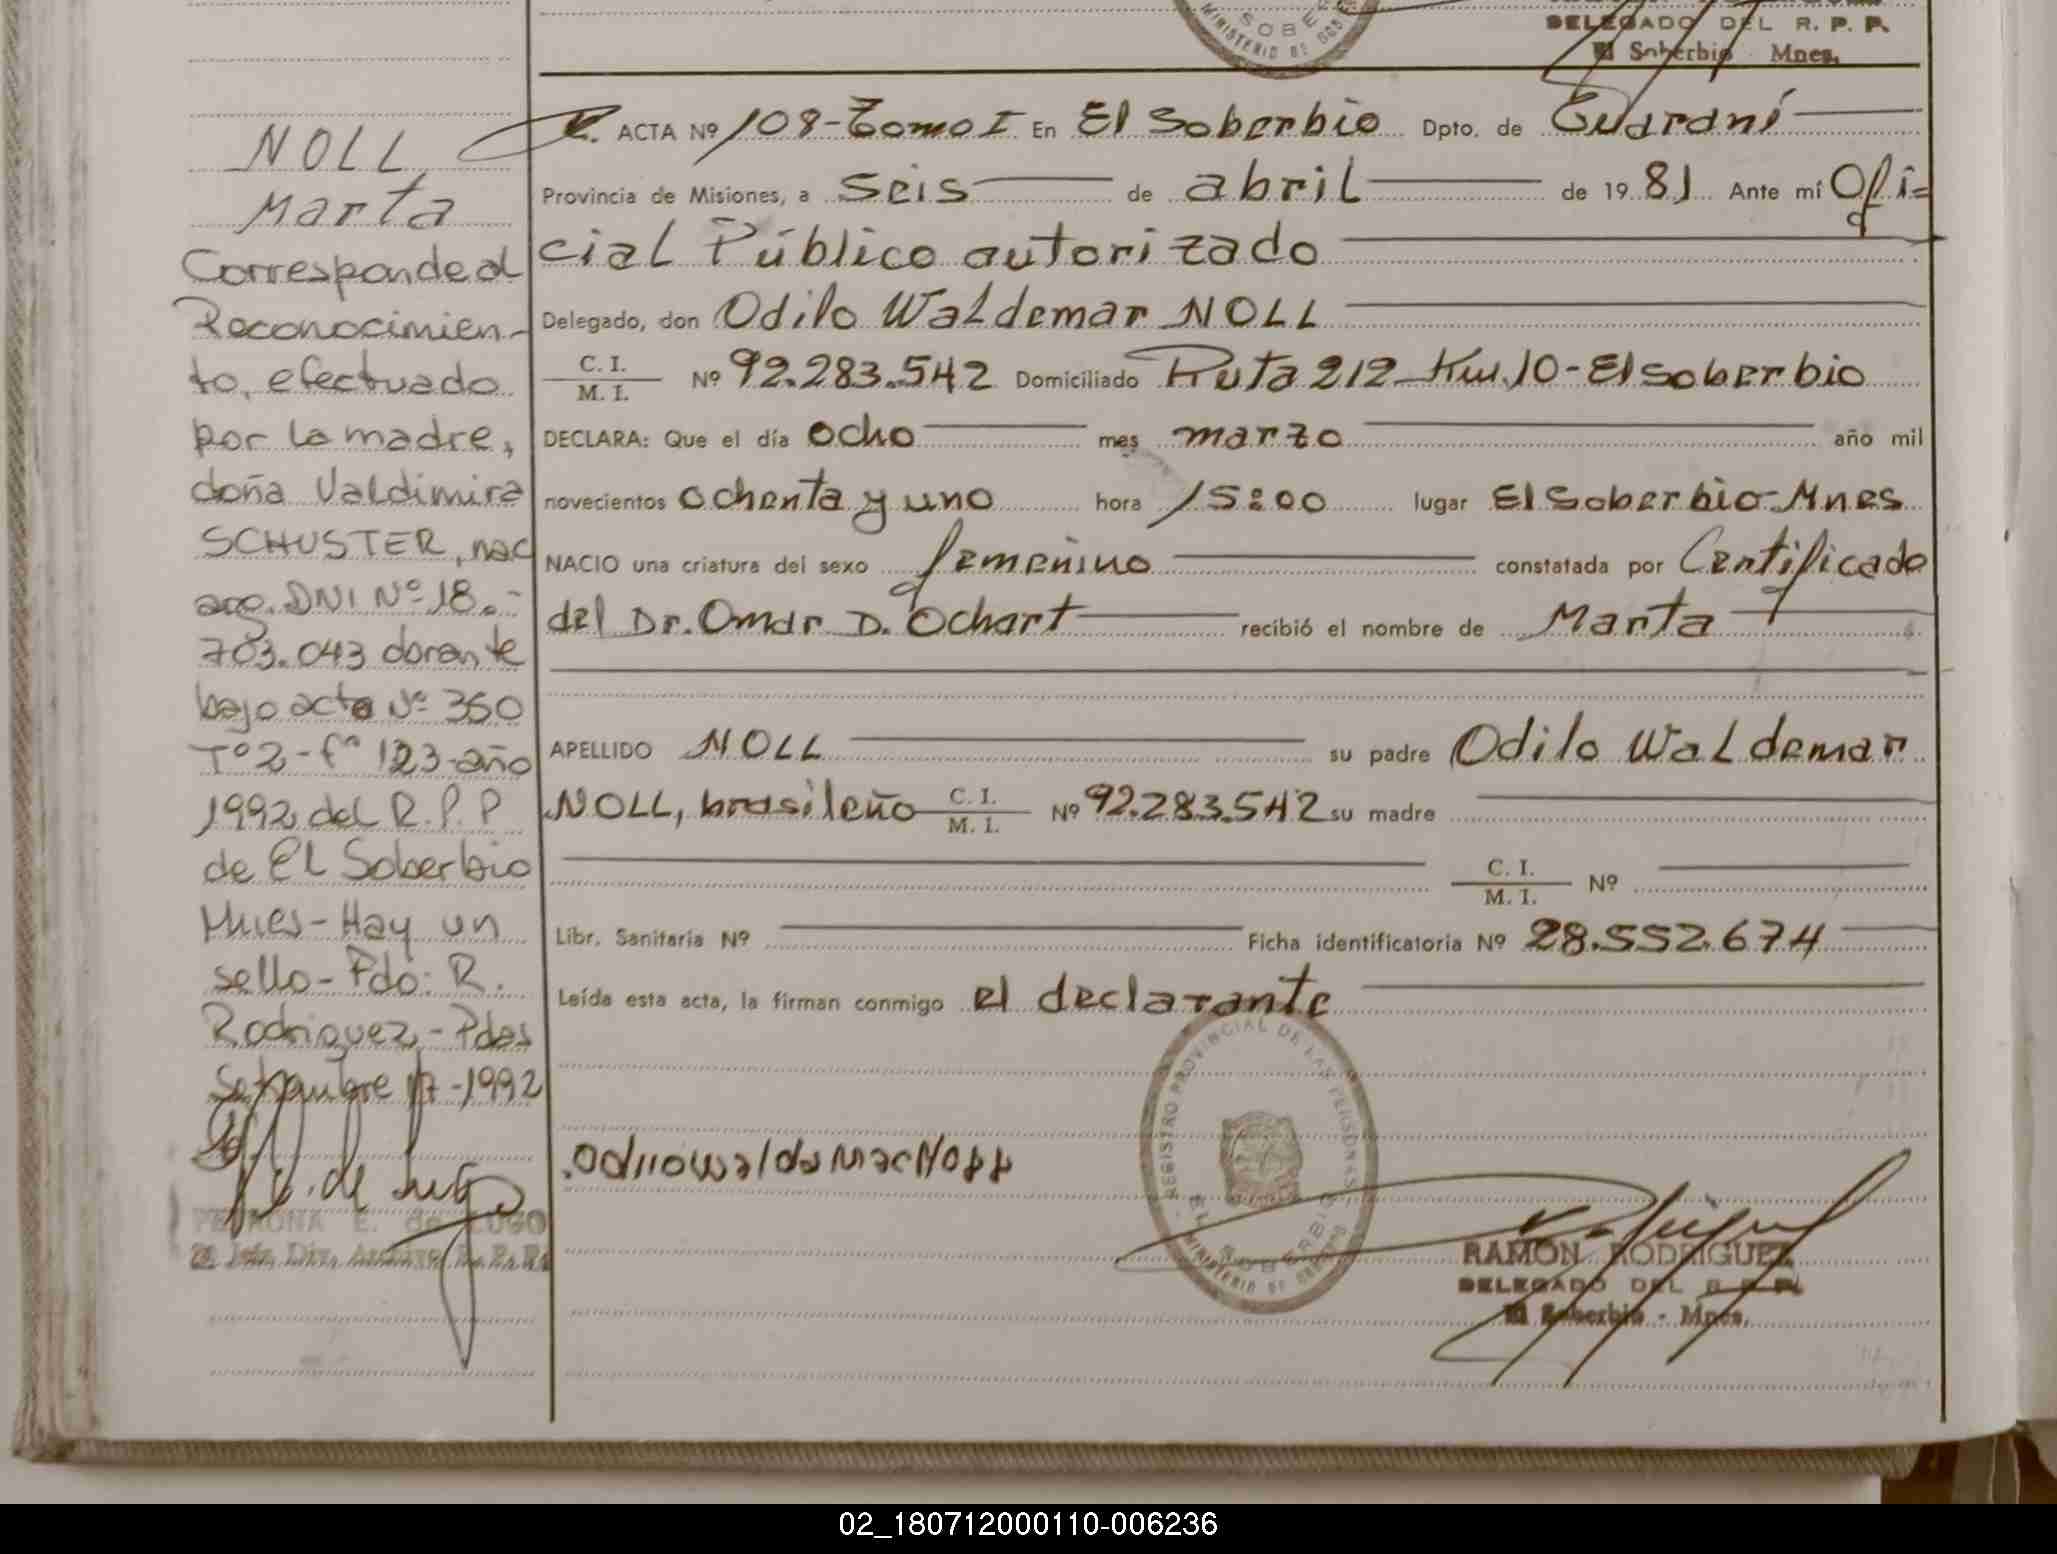 SOBER
MINISTERIO DE GOB
DELEGADO DEL R. P. P.
El Soberbio Mnes.
NOLL
Marta
Corresponde al
Reconocimien-
to, efectuado
por la madre,
doña Valdimira
SCHUSTER, nac
arg. DNI Nº 18.-
703.043 dorante
bajo acta Nº 350
Tº 2 - fº 123 - año
1992 del R.P.P
de El Soberbio
Mnes - Hay un
sello - Fdo: R.
Rodriguez - Pdas
Setiembre 17 - 1992
PETRONA E. de LUGO
Div. Archivo R. P. P.
ACTA Nº 108 - Tomo I En El Soberbio Dpto. de Guaraní
Provincia de Misiones, a seis de abril de 19 81 Ante mí Ofi=
cial Público autorizado
Delegado, don Odilo Waldemar NOLL
C. I.
M. I. Nº 92.283.542 Domiciliado Ruta 212 Km. 10 - El Soberbio
DECLARA: Que el día ocho mes marzo año mil
novecientos ochenta y uno hora 15:00 lugar El Soberbio - Mnes
NACIO una criatura del sexo femenino constatada por Certificado
del Dr. Omar D. Ochart recibió el nombre de Marta
APELLIDO NOLL su padre Odilo Waldemar
NOLL, brasileño C. I.
M. I. Nº 92.283.542 su madre
C. I.
M. I. Nº
Libr. Sanitaria Nº Ficha identificatoria Nº 28.552.674
Leída esta acta, la firman conmigo el declarante
REGISTRO PROVINCIAL DE LAS PERSONAS
EL SOBERBIO
MINISTERIO DE GOBIERNO
RAMON RODRIGUEZ
DELEGADO DEL R. P. P.
El Soberbio - Mnes.
02_180712000110-006236